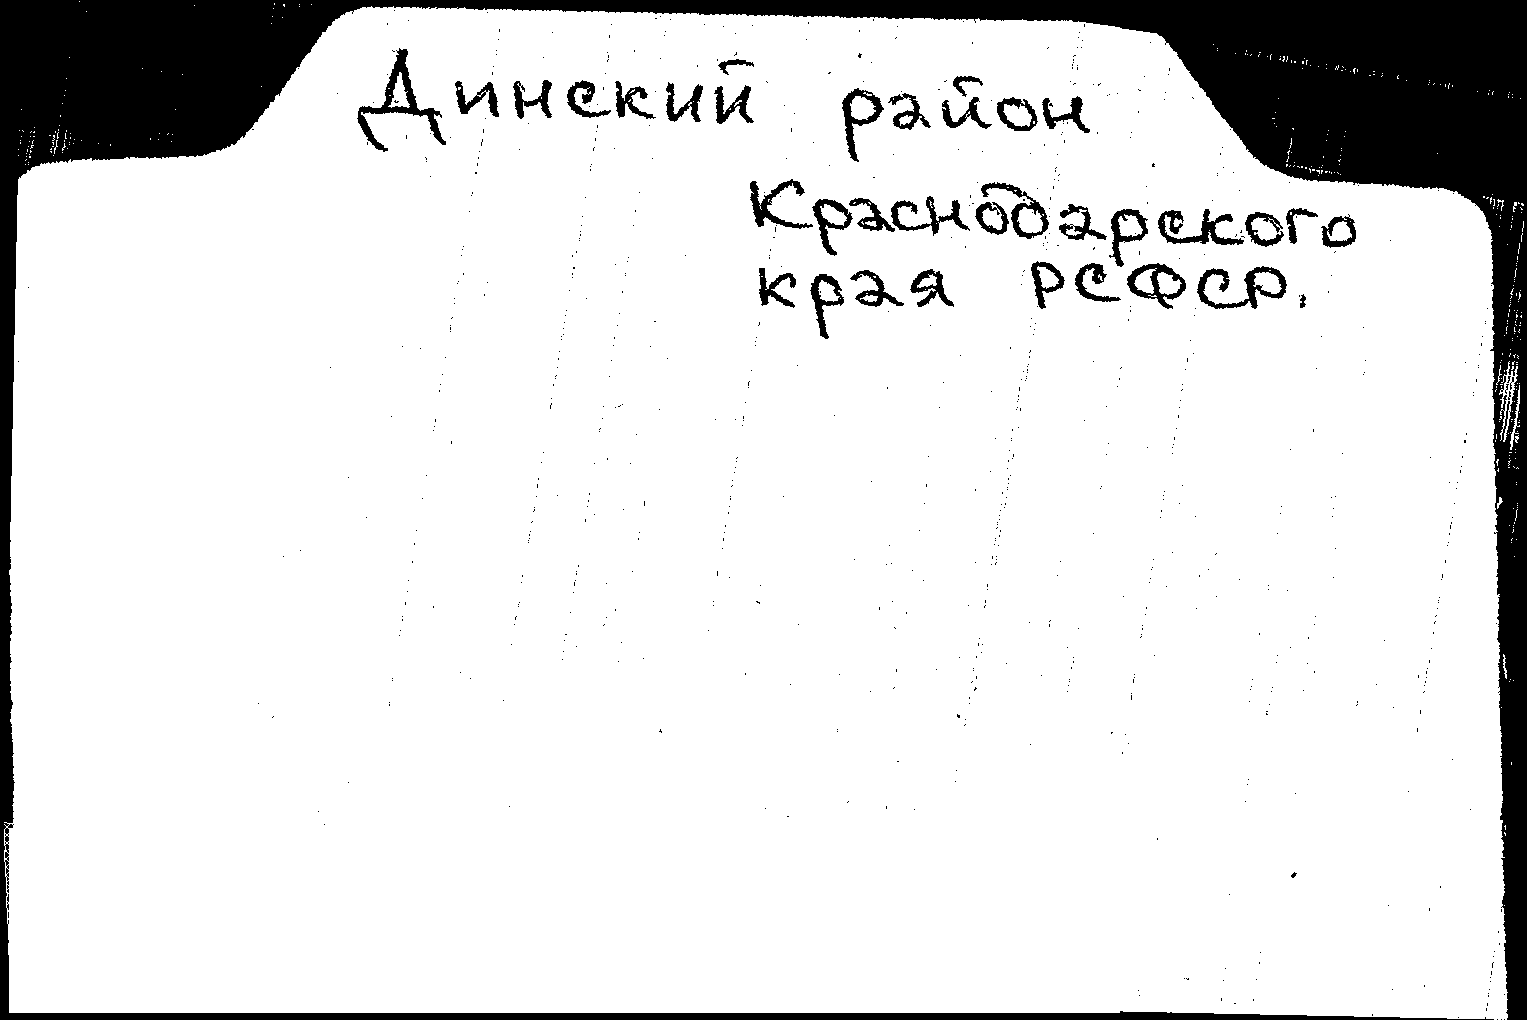 Динский район
Краснодарского
края РСФСР.